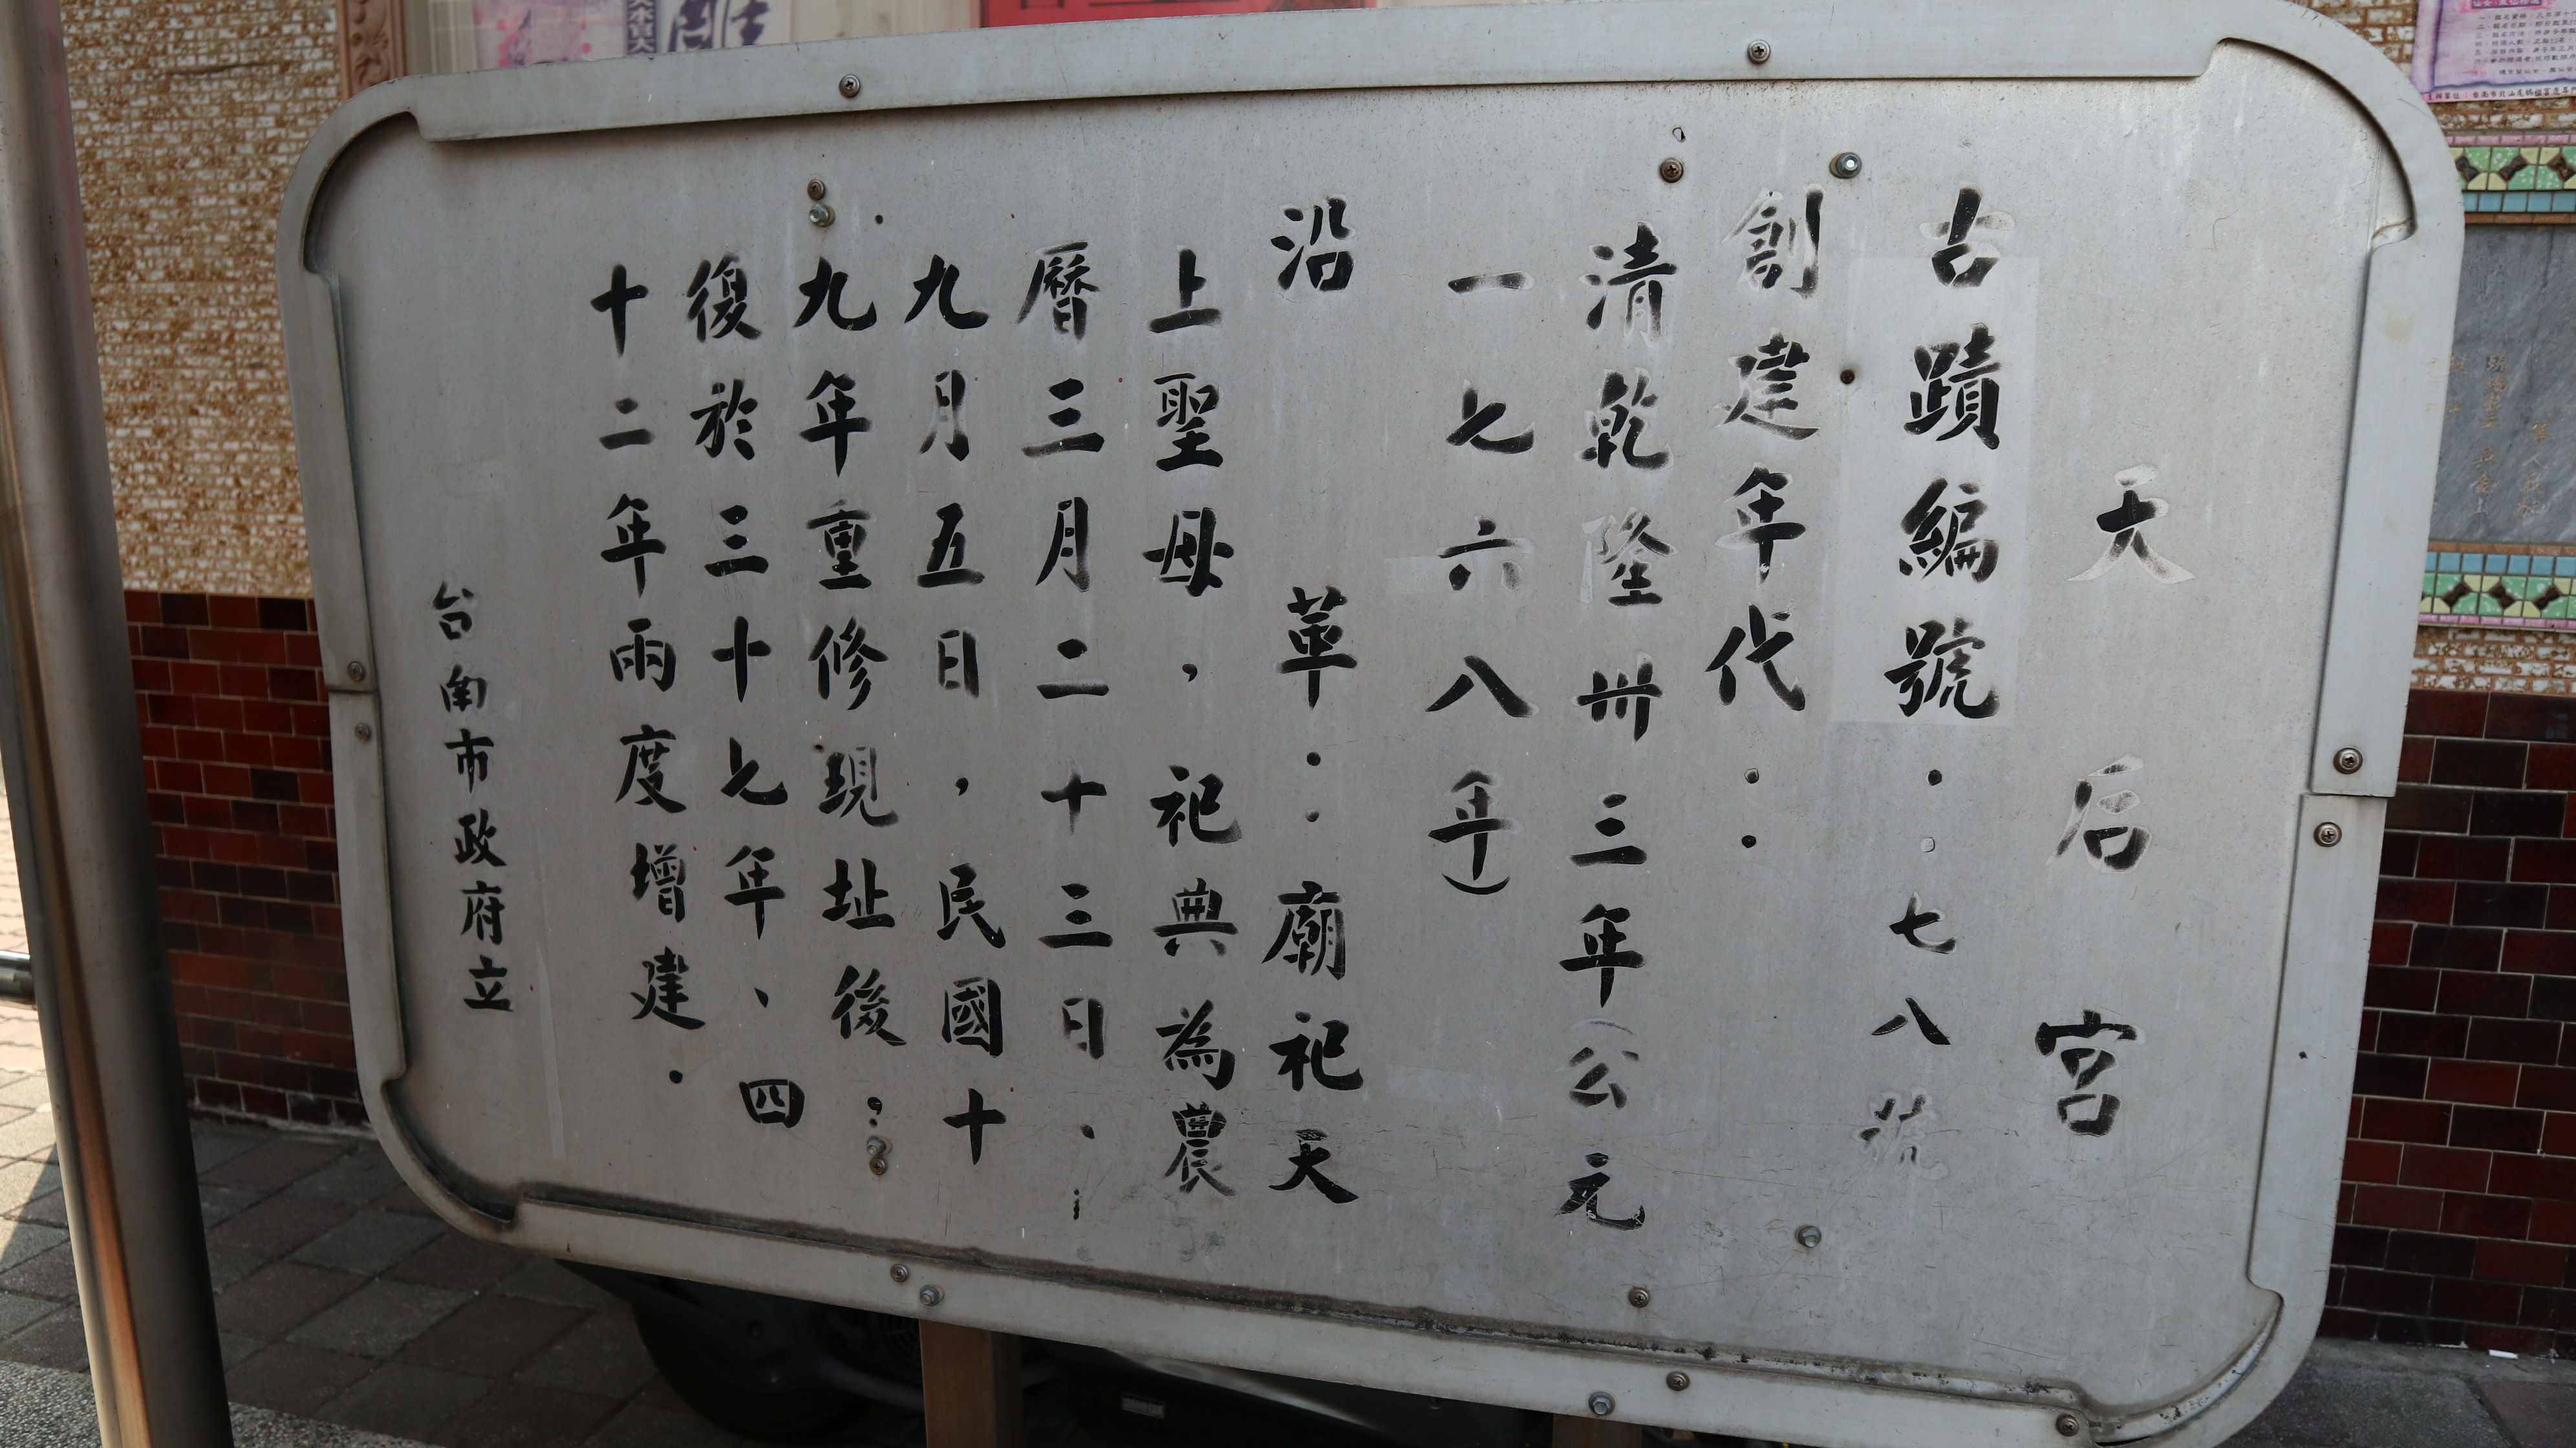 天后宮
古蹟編號：七八號
創建年代：
清乾隆卅三年（公元
一七六八年）
沿革：廟祀天
上聖母，祀典為農
曆三月二十三日．
九月五日，民國十
九年重修現址後；
復於三十七年、四
十二年兩度增建．
台南市政府立